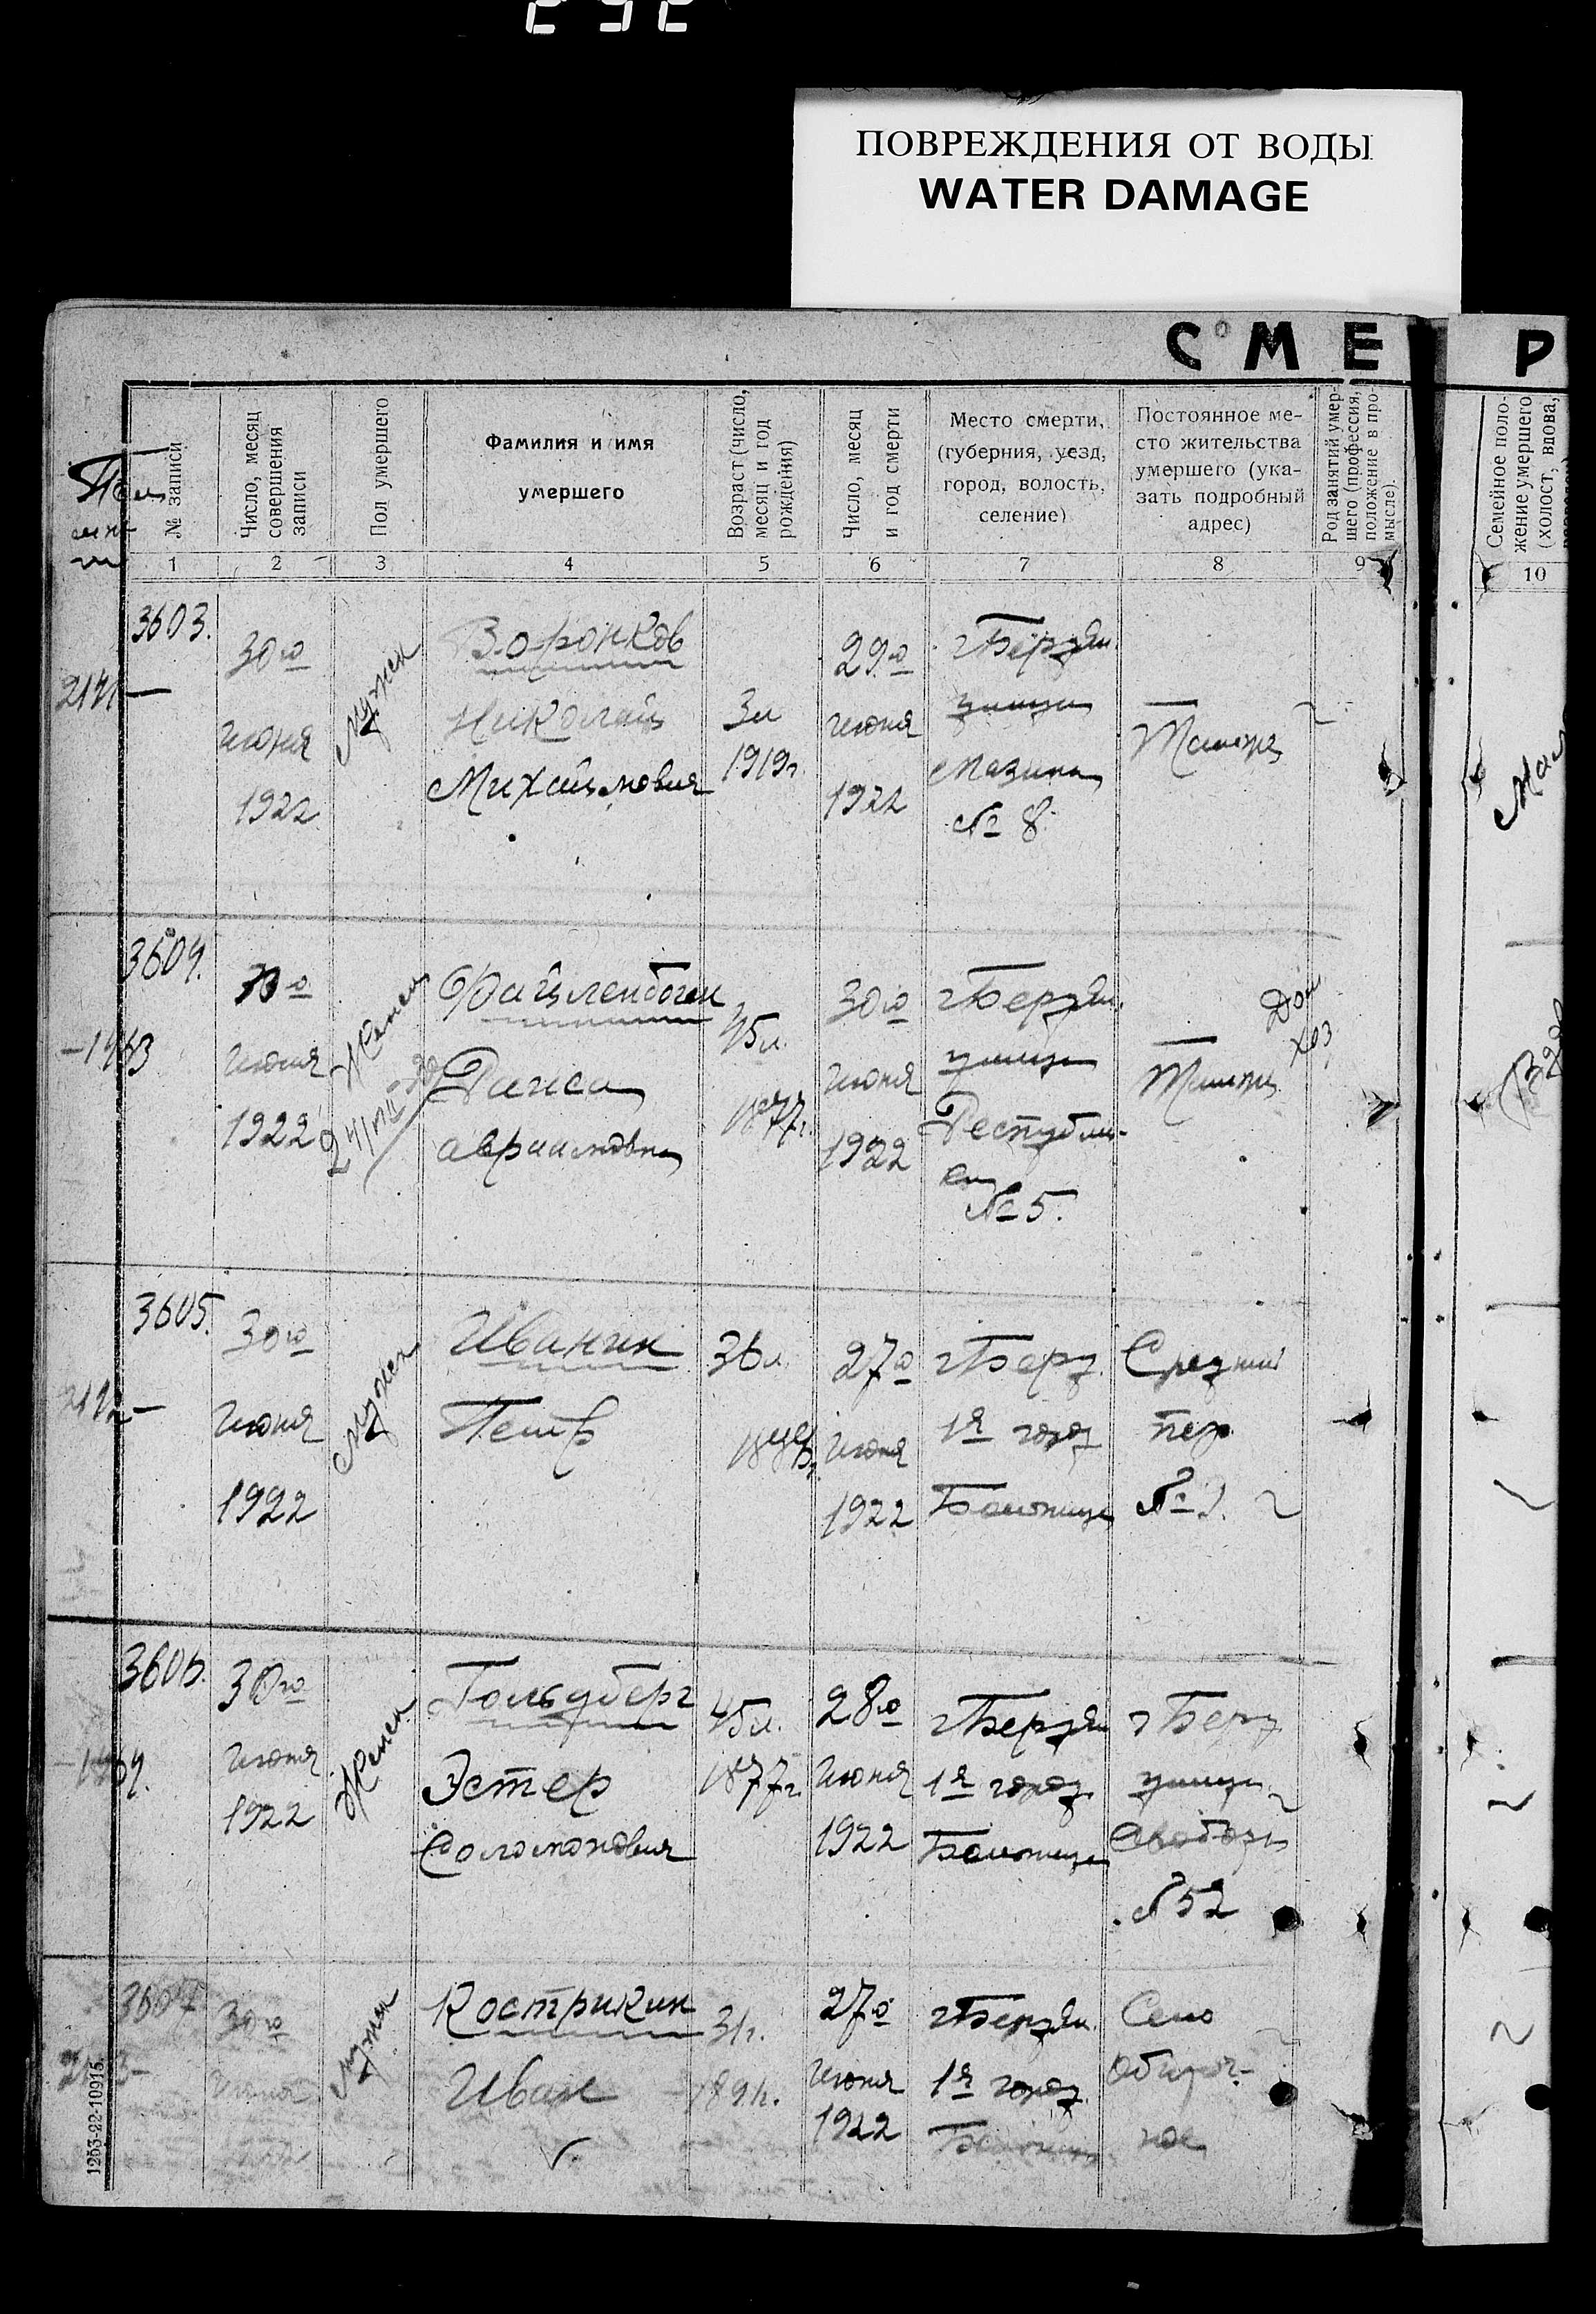 292
ПОВРЕЖДЕНИЯ ОТ ВОДЫ
WATER DAMAGE
СМЕ Р
№ записи
Число, месяц совершения записи
Пол умершего
Фамилия и имя
умершего
Возраст (число, месяц и год рождения)
Число, месяц и год смерти
Место смерти,
(губерния, уезд,
город, волость,
селение)
Постоянное ме-
сто жительства
умершего (ука-
зать подробный
адрес)
Род занятий умер-
шего (профессия,
положение в про-
мысле).
Семейное поло-
жение умершего
(холост, вдова,
1 2 3 4 5 6 7 8 9 10
3603.
30го
июня
1922
мужск
Воронков
Николай
Михайлович
3л
1919г.
29го
июня
1922
г Бердян
улица
Мазина
№ 8.
Тамже
3604.
30го
июня
1922
Женск
Файленбоген
Раиса
Авраамовна
45л.
1877г.
30го
июня
1922
г Бердян.
улица
Республи-
ки
№ 5.
Тамже
Дом
хоз
3605.
30го
июня
1922
мужск
Иванин
Петр
36л.
27го
июня
1922
г Берд.
1я город
Больница
Средний
пер.
3606.
30го
июня
1922
Женск
Гольдберг
Эстер
Соломоновна
45л.
1877г.
28го
июня
1922
г Бердян
1я город
Больница
г Берд
улица
Свободы
№ 52
3607
30го
июня
мужск
Кострикин
Иван
31г.
1891г.
27го
июня
1922
г Бердян.
1я город
Больница
Село
Обиточ-
ное
1253-22-10915.